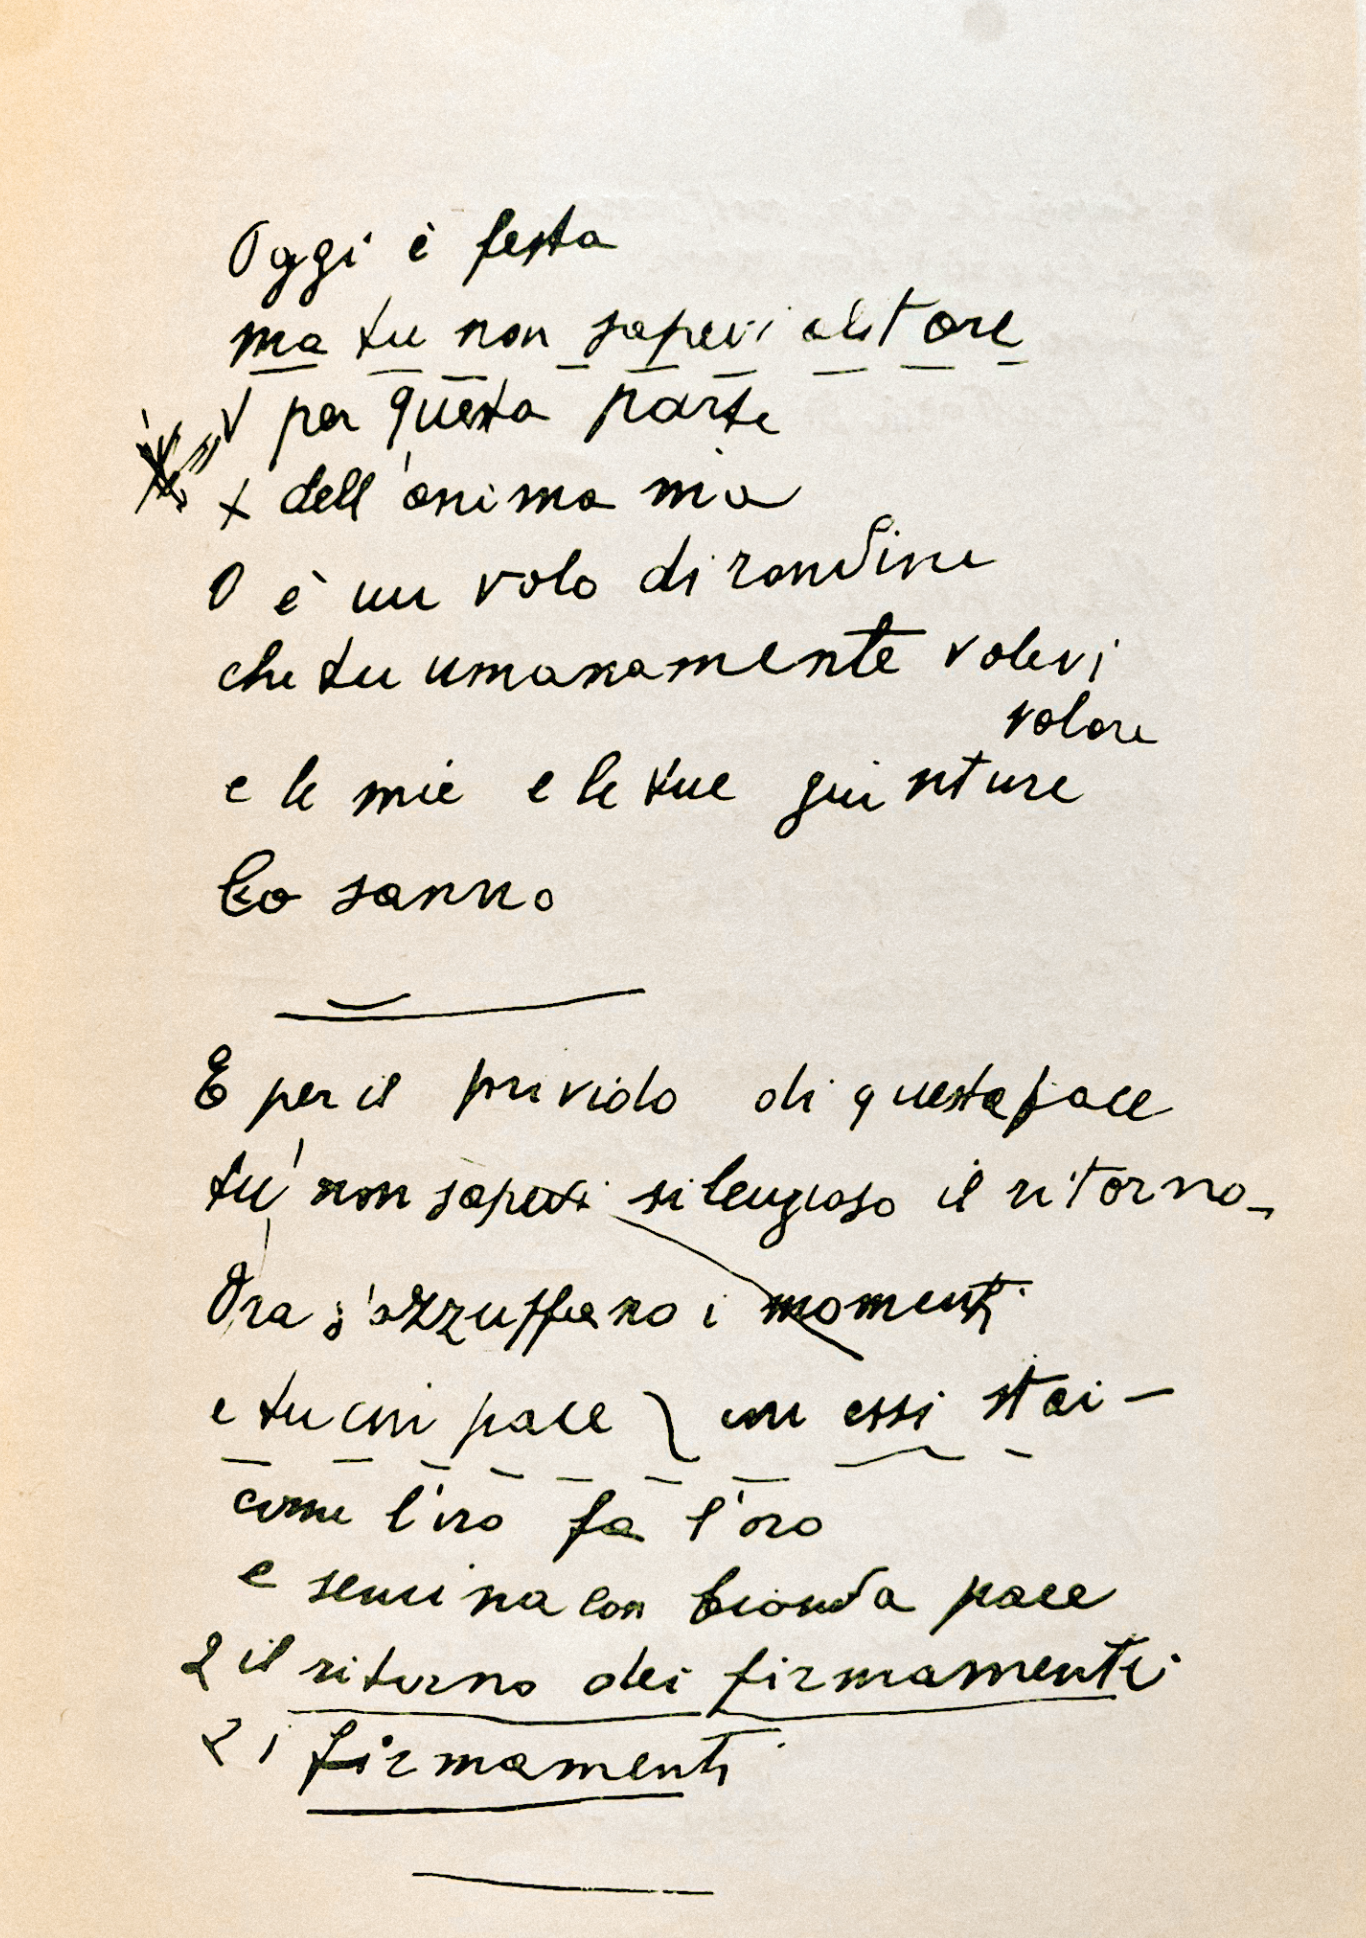 Oggi è festa
ma tu non sapevi alitare
per questa parte
dell'anima mia
O è un volo di rondine
che tu umanamente volevi
volare
e le mie e le tue giunture
Lo sanno
E per il privido di questa pace
tu non sapevi silenzioso il ritorno
Ora s'azzuffano i momenti
e tu con pace un essi stai –
come l'iro fa l'oro
e semina con bionda pace
2 il ritorno dei firmamenti
2 i firmamenti